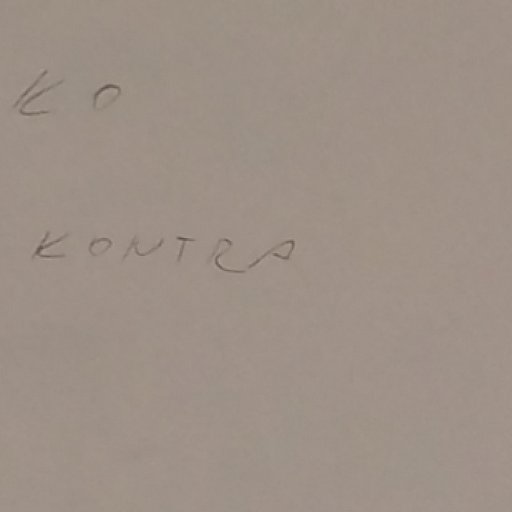 KO
KONTRA